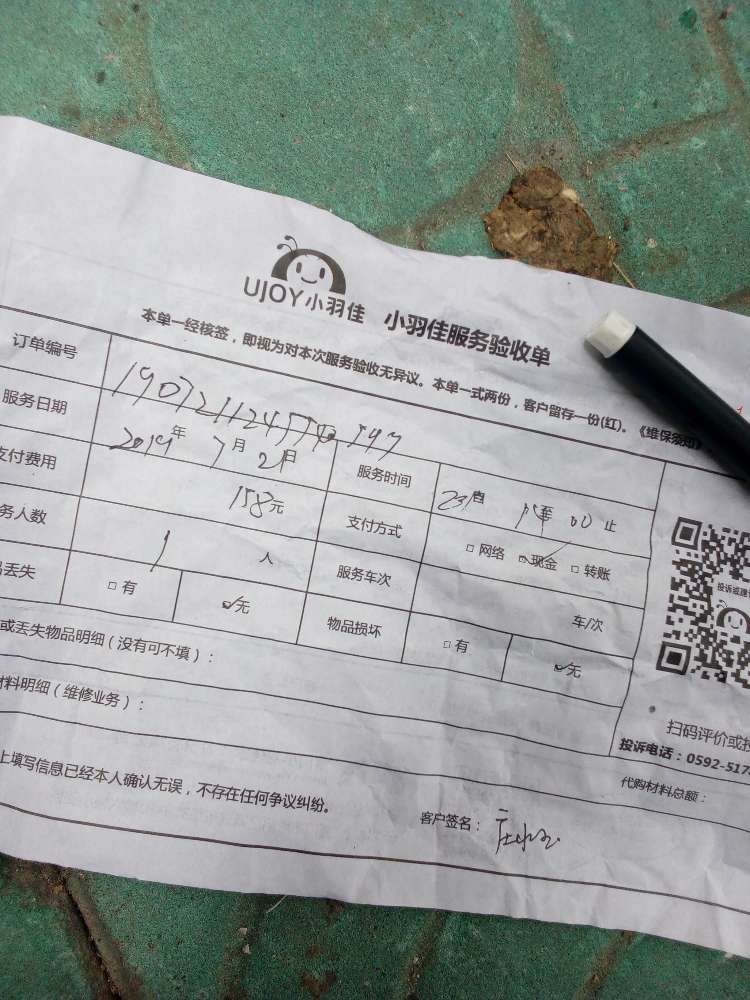 UJOY小羽佳 小羽佳服务验收单
本单一经核签，即视为对本次服务验收无异议。本单一式两份，客户留存一份(红)。《维保须知》
订单编号
服务日期 2019年 7月 21日 服务时间 自 至 止
支付费用 158元 支付方式 □网络 ☑现金 □转账
务人数 1 人 服务车次 车/次
丢失 □有 ☑无 物品损坏 □有 ☑无
或丢失物品明细（没有可不填）：
材料明细（维修业务）：
投诉或建
扫码评价或投
投诉电话：0592-517
代购材料总额：
上填写信息已经本人确认无误，不存在任何争议纠纷。
客户签名：